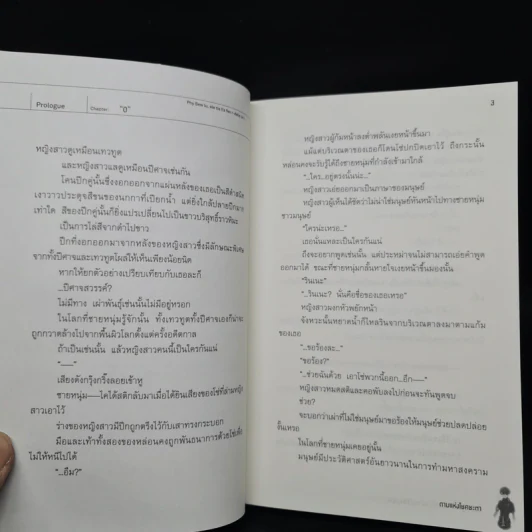 Prologue
Chapter:
"0"
หญิงสาวดูเหมือนเทวทูต
และหญิงสาวแลดูเหมือนปีศาจเช่นกัน
โคนปีกคู่นั้นซึ่งงอกออกจากแผ่นหลังของเธอเป็นสีดำสนิท
เงาวาวประดุจสีขนของนกกาที่เปียกน้ำ แต่ยิ่งใกล้ปลายปีกมาก
เท่าใด สีของปีกคู่นั้นก็ยิ่งแปรเปลี่ยนไปเป็นขาวบริสุทธิ์ราวหิมะ
เป็นการไล่สีจากดำไปขาว
ปีกที่งอกออกมาจากหลังของหญิงสาวซึ่งมีลักษณะพิเศษ
จากทั้งปีศาจและเทวทูตโผล่ให้เห็นเพียงน้อยนิด
หากให้ยกตัวอย่างเปรียบเทียบกับเธอละก็
...ปีศาจสวรรค์?
ไม่มีทาง เผ่าพันธุ์เช่นนั้นไม่มีอยู่หรอก
ในโลกที่ชายหนุ่มรู้จักนั้น ทั้งเทวทูตทั้งปีศาจเองก็น่าจะ
ถูกกวาดล้างไปจากพื้นผิวโลกตั้งแต่ครั้งอดีตกาล
ถ้าเป็นเช่นนั้น แล้วหญิงสาวคนนี้เป็นใครกันแน่
"——"
เสียงดังกรุ๊งกริ๊งลอยเข้าหู
ชายหนุ่ม——ไคได้สติกลับมาเมื่อได้ยินเสียงของโซ่ที่ล่ามหญิง
สาวเอาไว้
ร่างของหญิงสาวมีปีกถูกตรึงไว้กับเสาทรงกระบอก
มือและเท้าทั้งสองของหล่อนคงถูกพันธนาการด้วยโซ่เพื่อ
ไม่ให้หนีไปได้
"...อืม?"
3
หญิงสาวผู้ก้มหน้าลงต่ำพลันเงยหน้าขึ้นมา
แม้แต่บริเวณตาของเธอก็โดนโซ่ปกปิดเอาไว้ ถึงกระนั้น
หล่อนคงจะรับรู้ได้ถึงชายหนุ่มที่กำลังเข้ามาใกล้
"...ใคร...อยู่ตรงนั้นน่ะ..."
หญิงสาวเอ่ยออกมาเป็นภาษาของมนุษย์
หญิงสาวผู้เห็นได้ชัดว่าไม่น่าใช่มนุษย์หันหน้าไปทางชายหนุ่ม
ชาวมนุษย์
"ใครน่ะเหรอ..."
เธอนั่นแหละเป็นใครกันแน่
ถึงจะอยากพูดเช่นนั้น แต่ประหม่าจนไม่สามารถเอ่ยคำพูด
ออกมาได้ ขณะที่ชายหนุ่มกลั้นหายใจเงยหน้าขึ้นมองนั้น
"รินเนะ"
"...รินเนะ? นั่นคือชื่อของเธอเหรอ"
หญิงสาวผงกหัวพยักหน้า
จังหวะนั้นหยาดน้ำก็ไหลรินจากบริเวณตาลงมาตามแก้ม
ของเธอ
"...ขอร้องละ..."
"ขอร้อง?"
"...ช่วยฉันด้วย เอาโซ่พวกนี้ออก...อึก——"
หญิงสาวหมดสติและคอพับลงไปก่อนจะทันพูดจบ
ช่วย?
จะบอกว่าเผ่าที่ไม่ใช่มนุษย์มาขอร้องให้มนุษย์ช่วยปลดปล่อย
งั้นเหรอ
ในโลกที่ชายหนุ่มเคยอยู่นั้น
มนุษย์มีประวัติศาสตร์อันยาวนานในการทำมหาสงคราม